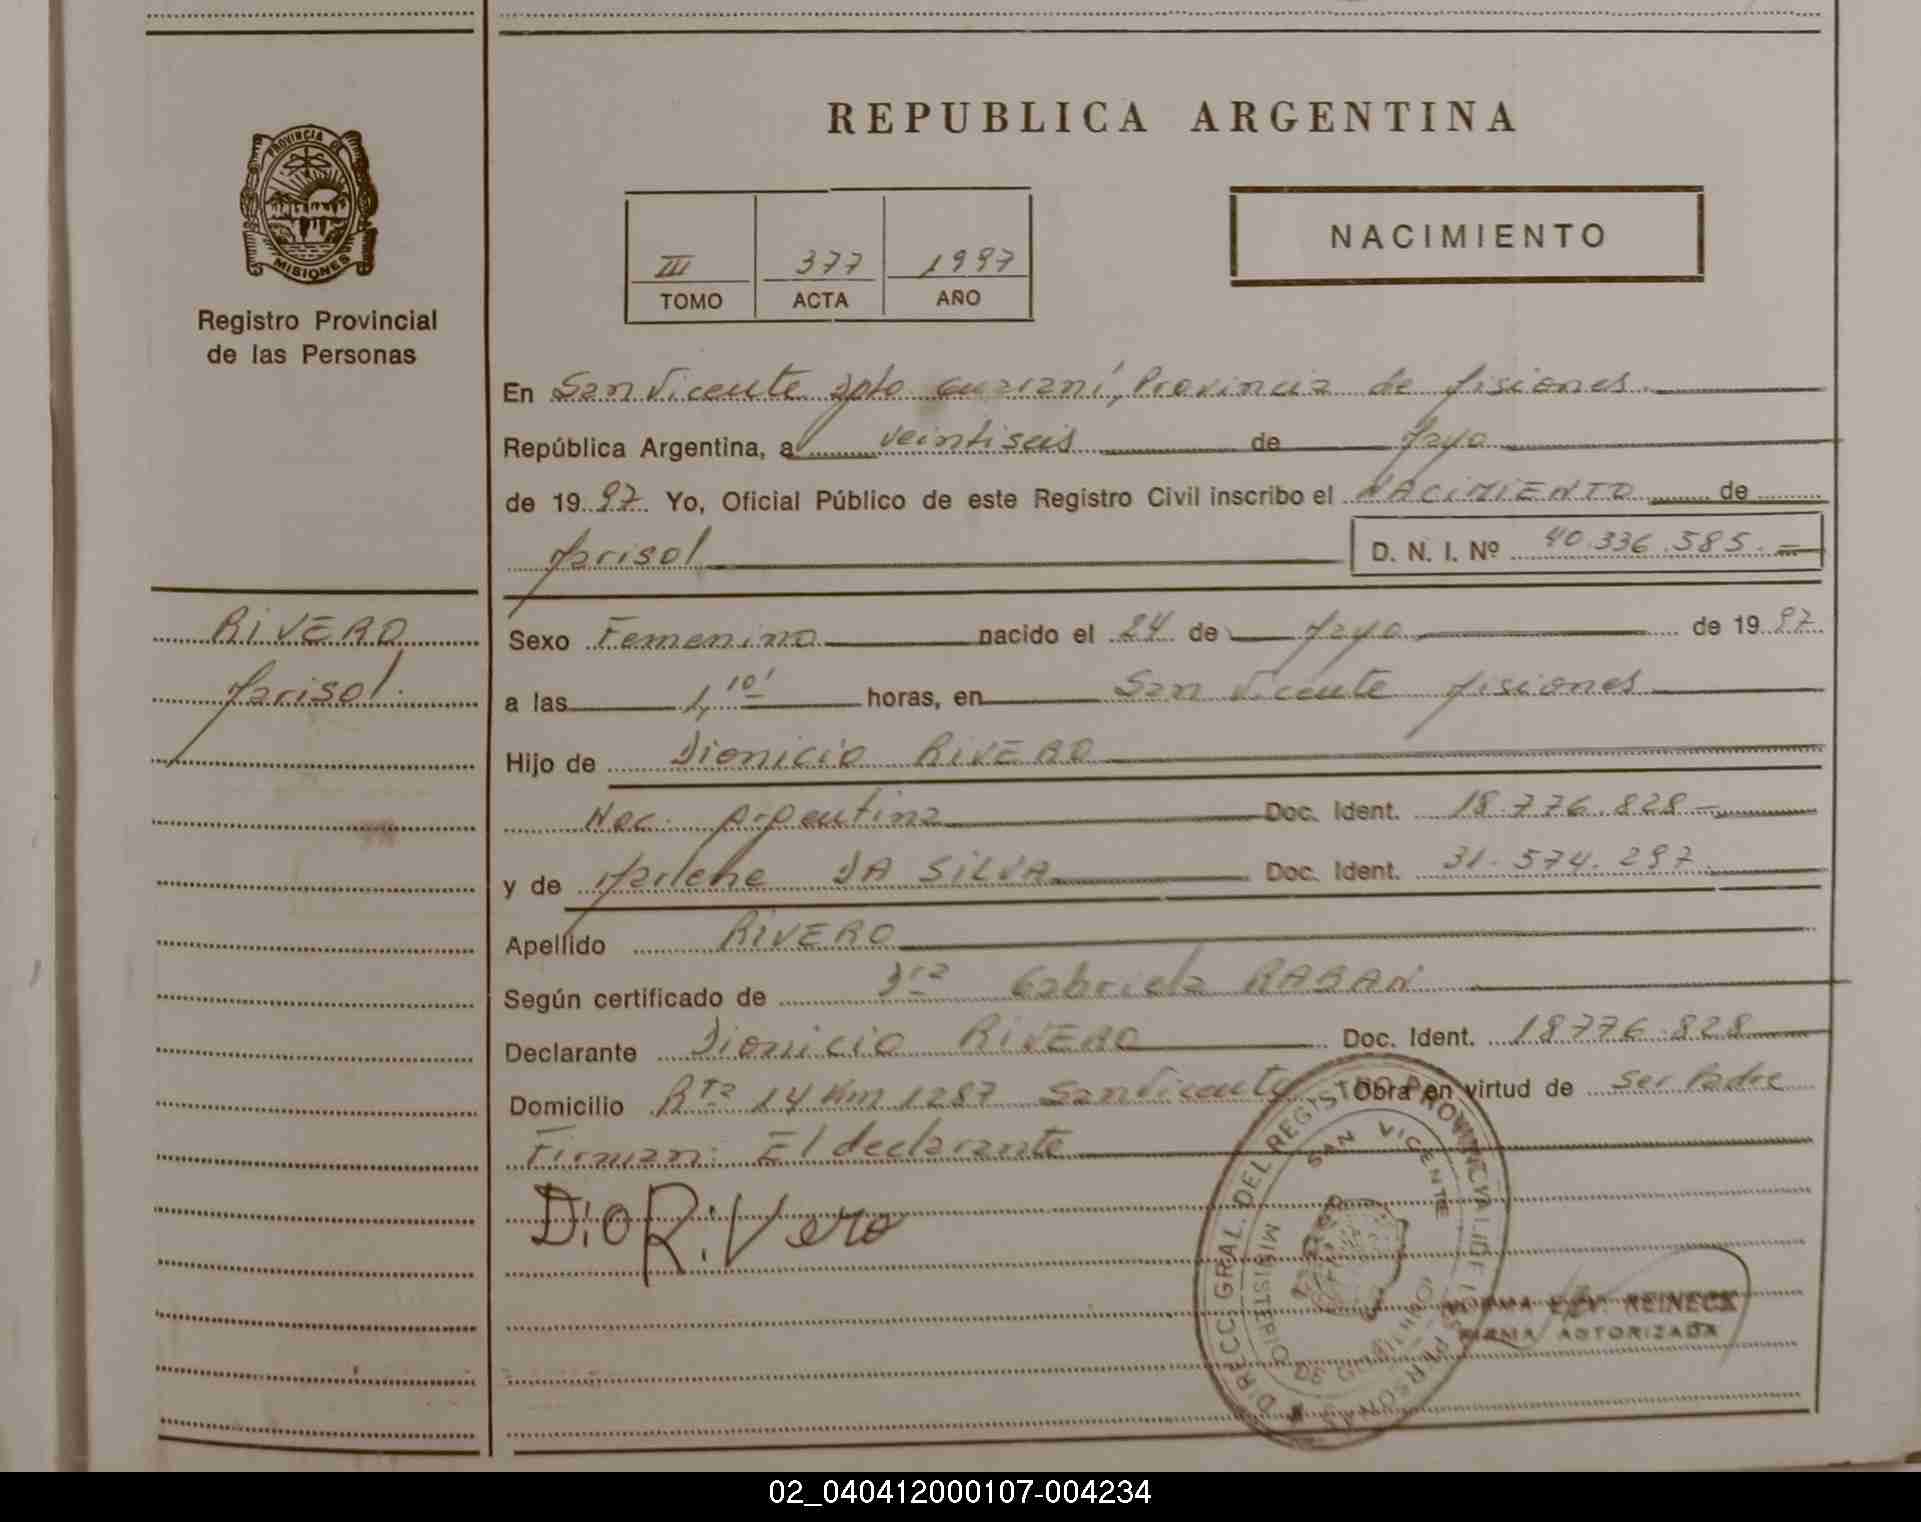 REPUBLICA ARGENTINA
PROVINCIA DE
MISIONES
Registro Provincial
de las Personas
III 377 1997
TOMO ACTA AÑO
NACIMIENTO
En San Vicente Dpto Guaraní, Provincia de Misiones
República Argentina, a veintiseis de Mayo
de 1997 Yo, Oficial Público de este Registro Civil inscribo el NACIMIENTO de
Marisol D. N. I. Nº 40.336.585.-
RIVERO
Marisol.
Sexo Femenino nacido el 24 de Mayo de 1997
a las 1,10' horas, en San Vicente Misiones
Hijo de Dionicio RIVERO
Nac. Argentina Doc. Ident. 18.776.828-
y de Marlene DA SILVA Doc. Ident. 31.574.297
Apellido RIVERO
Según certificado de Dra Gabriela RABAN
Declarante Dionicio RIVERO Doc. Ident. 18776.828
Domicilio Rta 14 Km 1287 San Vicente Obra en virtud de Ser Padre
Firman: El declarante
Dio RiVero
DIRECC. GRAL. DEL REGISTRO PROVINCIAL DE LAS PERSONAS
SAN VICENTE
MINISTERIO DE GOBIERNO
NORMA REINECK
FIRMA AUTORIZADA
02_040412000107-004234